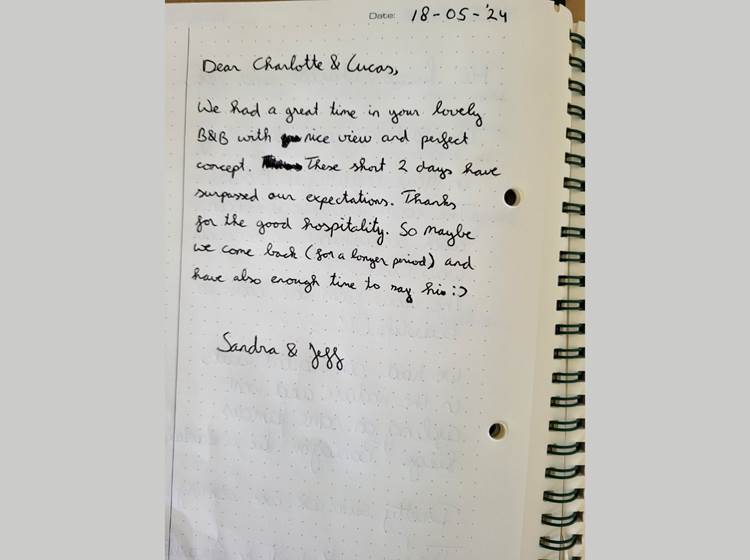 Date: 18-05-'24
Dear Charlotte & Lucas,
We had a great time in your lovely
B&B with nice view and perfect
concept. These short 2 days have
surpassed our expectations. Thanks
for the good hospitality. So maybe
we come back (for a longer period) and
have also enough time to say hi :)
Sandra & Jeff